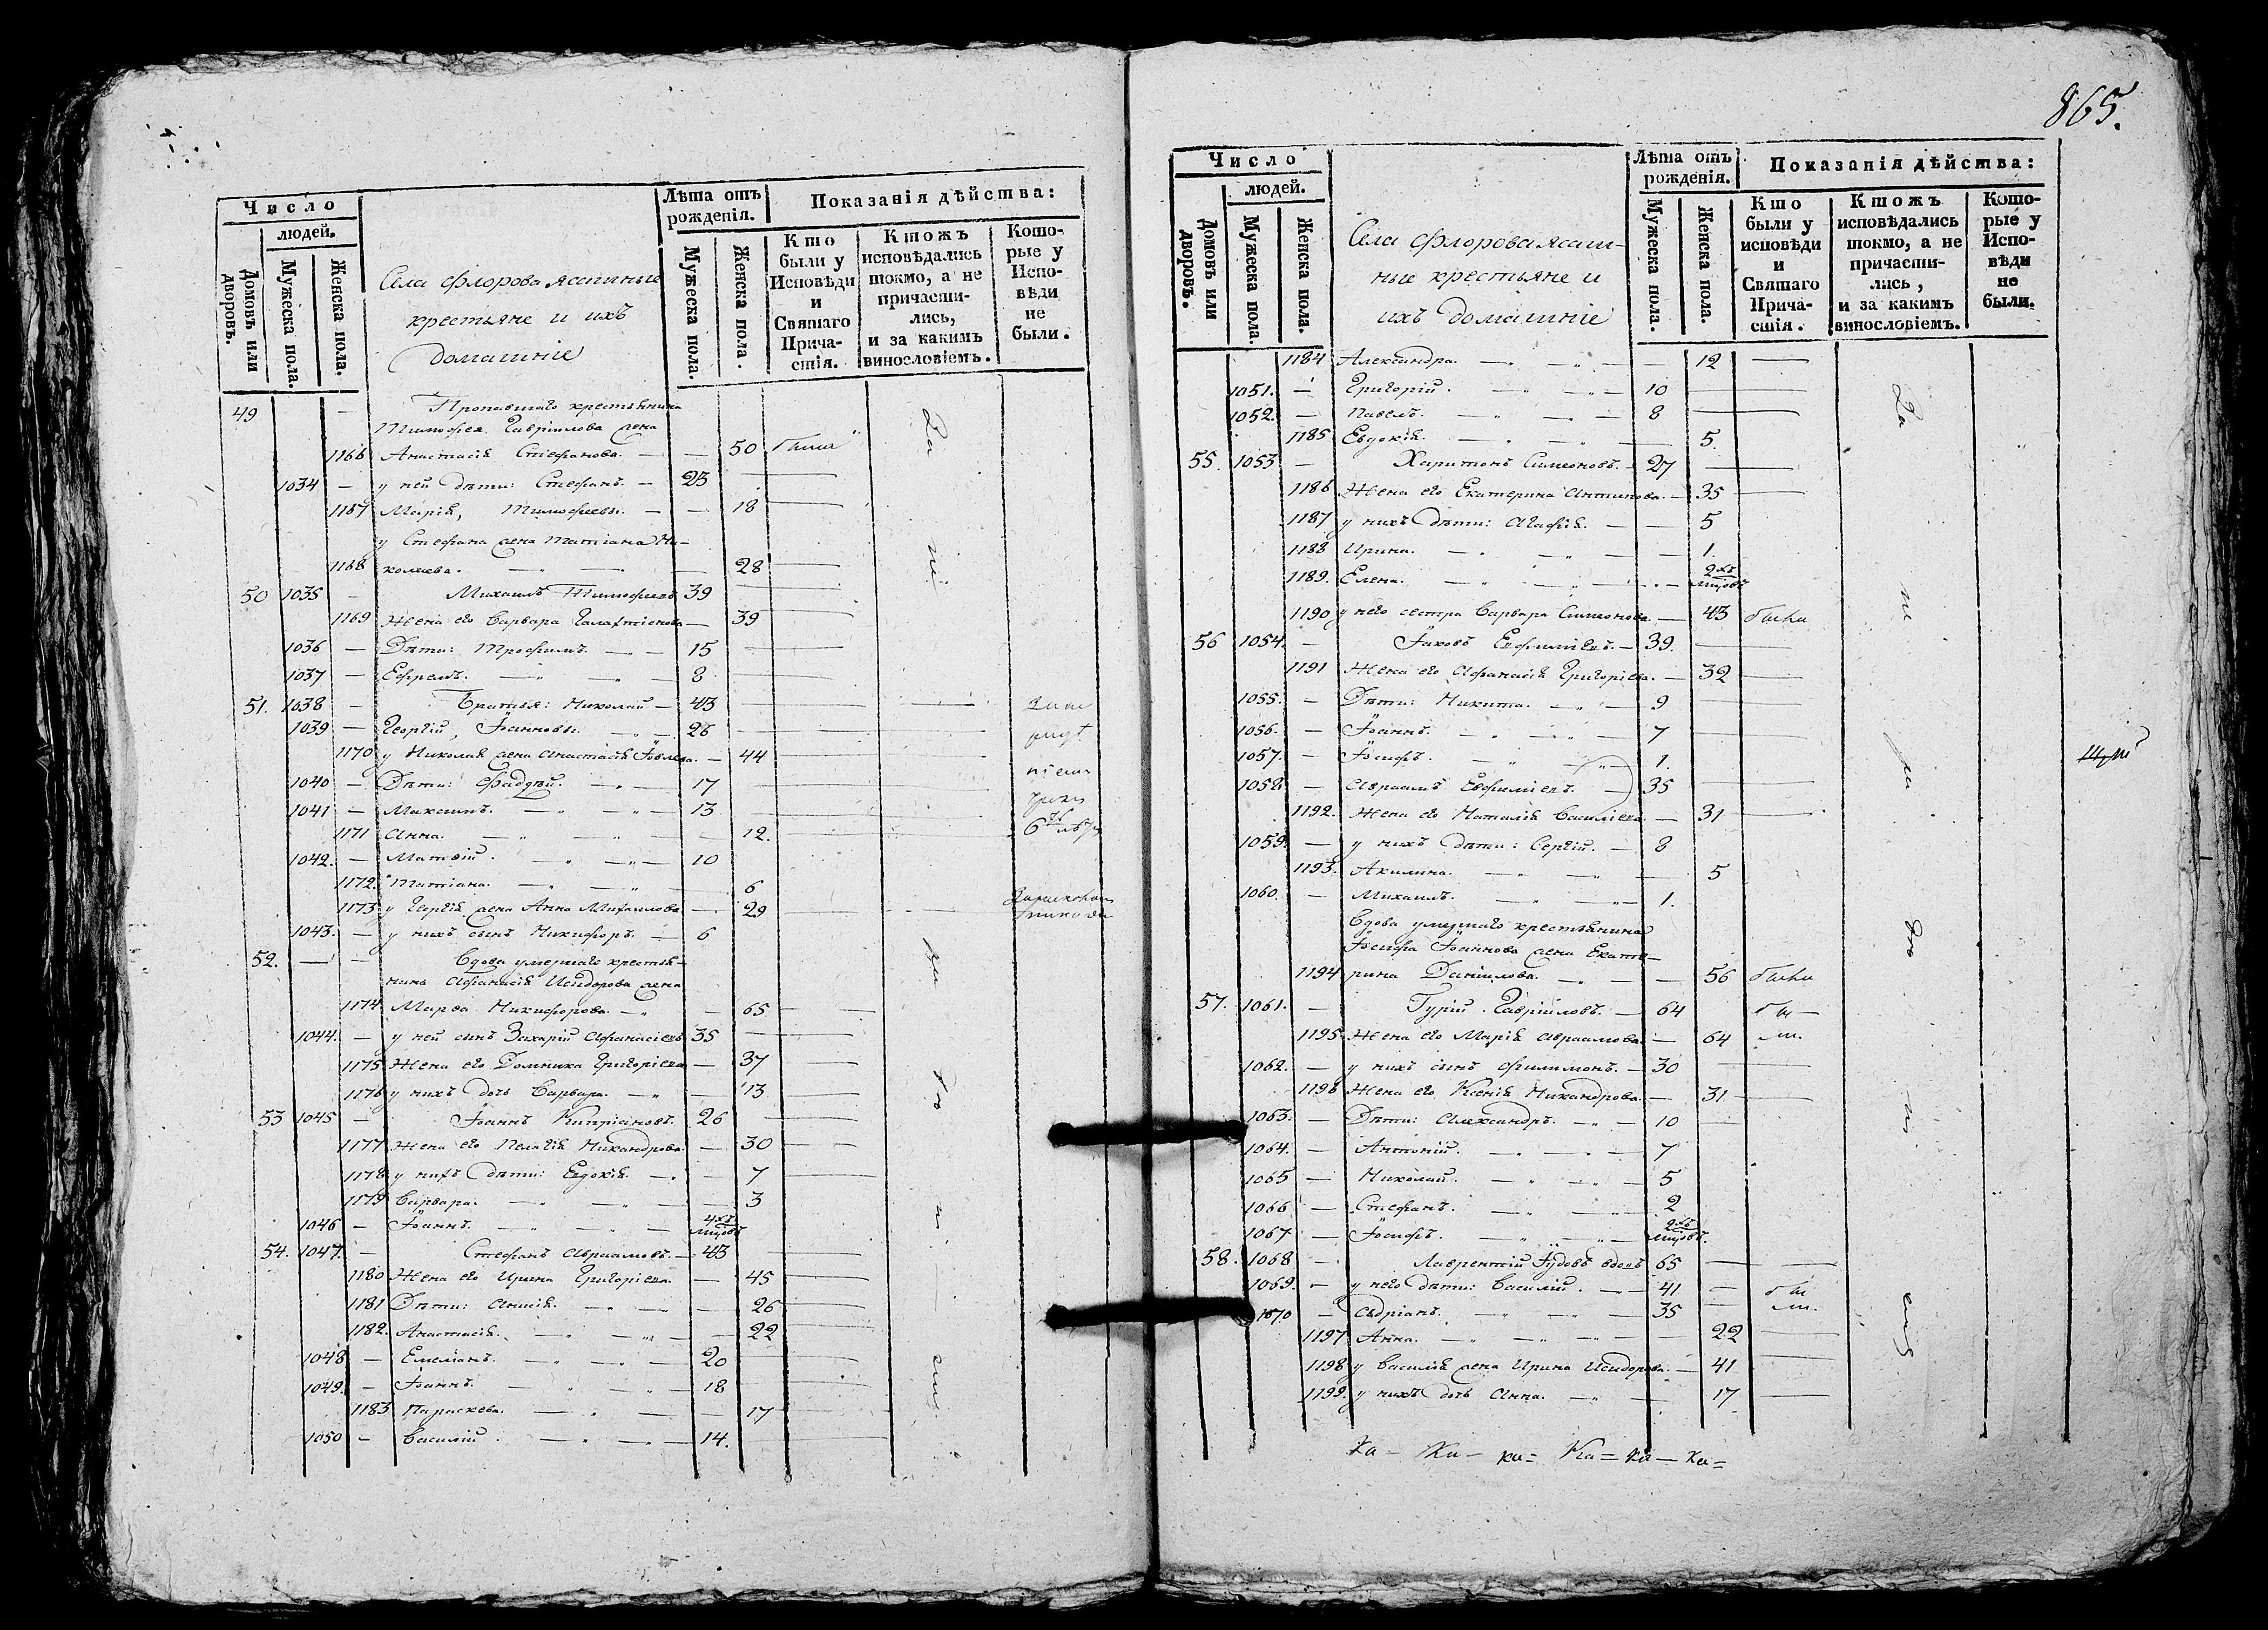 Число
людей.
Домовъ или дворовъ.
Мужеска пола.
Женска пола.
Села Флорова ясашные
крестьяне и ихъ
домашніе
Лѣта отъ рожденія.
Мужеска пола.
Женска пола.
Показанія дѣйства:
Кто были у Исповѣди и Святаго Причастія.
Ктожъ исповѣдались токмо, а не причастились, и за какимъ винословіемъ.
Которые у Исповѣди не были.
49 — Пропавшаго крестьянина
Тимофея Гавріилова жена
1166 Анастасія Стефанова. — — 50 была
1034 — у ней дѣти: Стефанъ. — 23
1167 Марія, Тимофеевы. — — 18
у Стефана жена Татіана Ни-
1168 колаева. — — — 28
50 1035 — Михаилъ Тимофеевъ 39
1169 Жена его Варвара Галактіонова — 39
1036 — Дѣти: Трофимъ. — — 15
1037 — Ефремъ. — — 8
51. 1038 — Братья: Николай — 43
1039 — Георгій, Іоанновы. — 26
1170 у Николая жена Анастасія Іовлева. — 44
1040 — Дѣти: Фаддей. — 17
1041 — Максимъ. — — 13
1171 Анна. — — — 12.
1042. — Матвій. — — 10
1172. Татіана. — — — 6
1173 у Георгія жена Анна Михаилова — 29
1043. — у нихъ сынъ Никифоръ. — 6
52. — — Вдова умершаго крестья-
нина Афанасія Исидорова жена
1174 Марфа Никифорова. — — 65
1044. — у ней сынъ Захарій Афанасіевъ 35
1175 Жена его Домника Григоріева — 37
1176 у нихъ дочь Варвара. — — 13
53 1045 — Іоаннъ Кипріановъ. 26
1177 Жена его Пелагія Никандрова — 30
1178 у нихъ дѣти: Евдокія. — — 7
1179 Варвара. — — — 3
1046 — Іоаннъ. — — 4хъ мцовъ
54. 1047. — Стефанъ Авраамовъ. — 43
1180 Жена его Ирина Григоріева. — 45
1181 Дѣти: Анисія. — — — 26
1182. Анастасія. — — — 22
1048 — Емеліанъ. — — 20
1049. — Іоаннъ. — — 18
1183 Параскева. — — — 17
1050 — Василій. — — 14.
865.
Число
людей.
Домовъ или дворовъ.
Мужеска пола.
Женска пола.
Села Флорова ясаш-
ные крестьяне и
ихъ домашніе
Лѣта отъ рожденія.
Мужеска пола.
Женска пола.
Показанія дѣйства:
Кто были у исповѣди и Святаго Причастія.
Ктожъ исповѣдались токмо, а не причастились, и за какимъ винословіемъ.
Которые у Исповѣди не были.
1184 Александра. — — — 12
1051. — Григорій. — — 10
1052. — Павелъ. — — 8
1185 Евдокія. — — — 5.
55. 1053 — Харитонъ Симеоновъ. — 27
1186 Жена его Екатерина Антипова. — 35
1187 у нихъ дѣти: Агафія. — — 5
1188 Ирина. — — — 1.
1189. Елена. — — — 2хъ мцовъ
1190 у него сестра Варвара Симеонова. — 43 были
56 1054. — Іаковъ Евфиміевъ. — 39.
1191 Жена его Афанасія Григоріева. — 32
1055. — Дѣти: Никита. — — 9
1056. — Іоаннъ. — — 7
1057. — Іосифъ. — — 1.
1058. — Авраамъ Евфиміевъ. — 35
1192. Жена его Наталія Василіева — 31
1059. — у нихъ дѣти: Сергій. — 8
1193. Акилина. — — — 5
1060. — Михаилъ. — — 1.
Вдова умершаго крестьянина
Іосифа Іоаннова жена Екате-
1194 рина Даніилова. — — 56 были
57. 1061. — Гурій Гавріиловъ. — 64
1195. Жена его Марія Авраамова. — 64
1062. — у нихъ сынъ Филимонъ. — 30
1196 Жена его Ксенія Никандрова. — 31
1063. — Дѣти: Александръ. — — 10
1064. — Антоній. — — 7
1065 — Николай. — — 5
1066 — Стефанъ. — — 2
1067 — Іосифъ. — — 2хъ мцовъ.
58. 1068 — Лаврентій Іудовъ вдовъ 65
1069. — у него дѣти: Василій. — 41
1070 — Адріанъ. — — 35
1197 Анна. — — — 22
1198 у Василія жена Ирина Исидорова. — 41
1199. у нихъ дочь Анна. — — 17